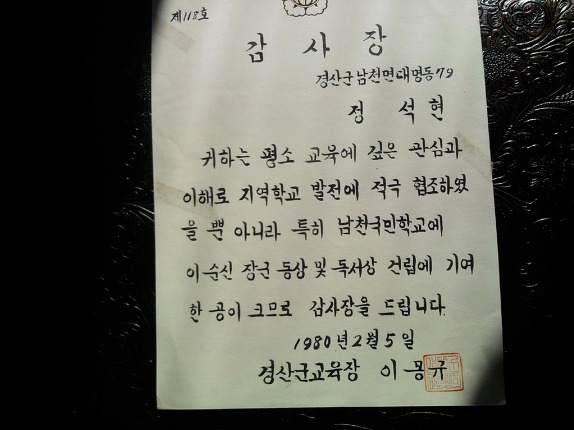 제118호
감 사 장
경산군남천면대명동79
정 석 현
귀하는 평소 교육에 깊은 관심과
이해로 지역학교 발전에 적극 협조하였
을 뿐 아니라 특히 남천국민학교에
이순신 장군 동상 및 독서상 건립에 기여
한 공이 크므로 감사장을 드립니다.
1980년 2월 5일
경산군교육장 이 몽 규